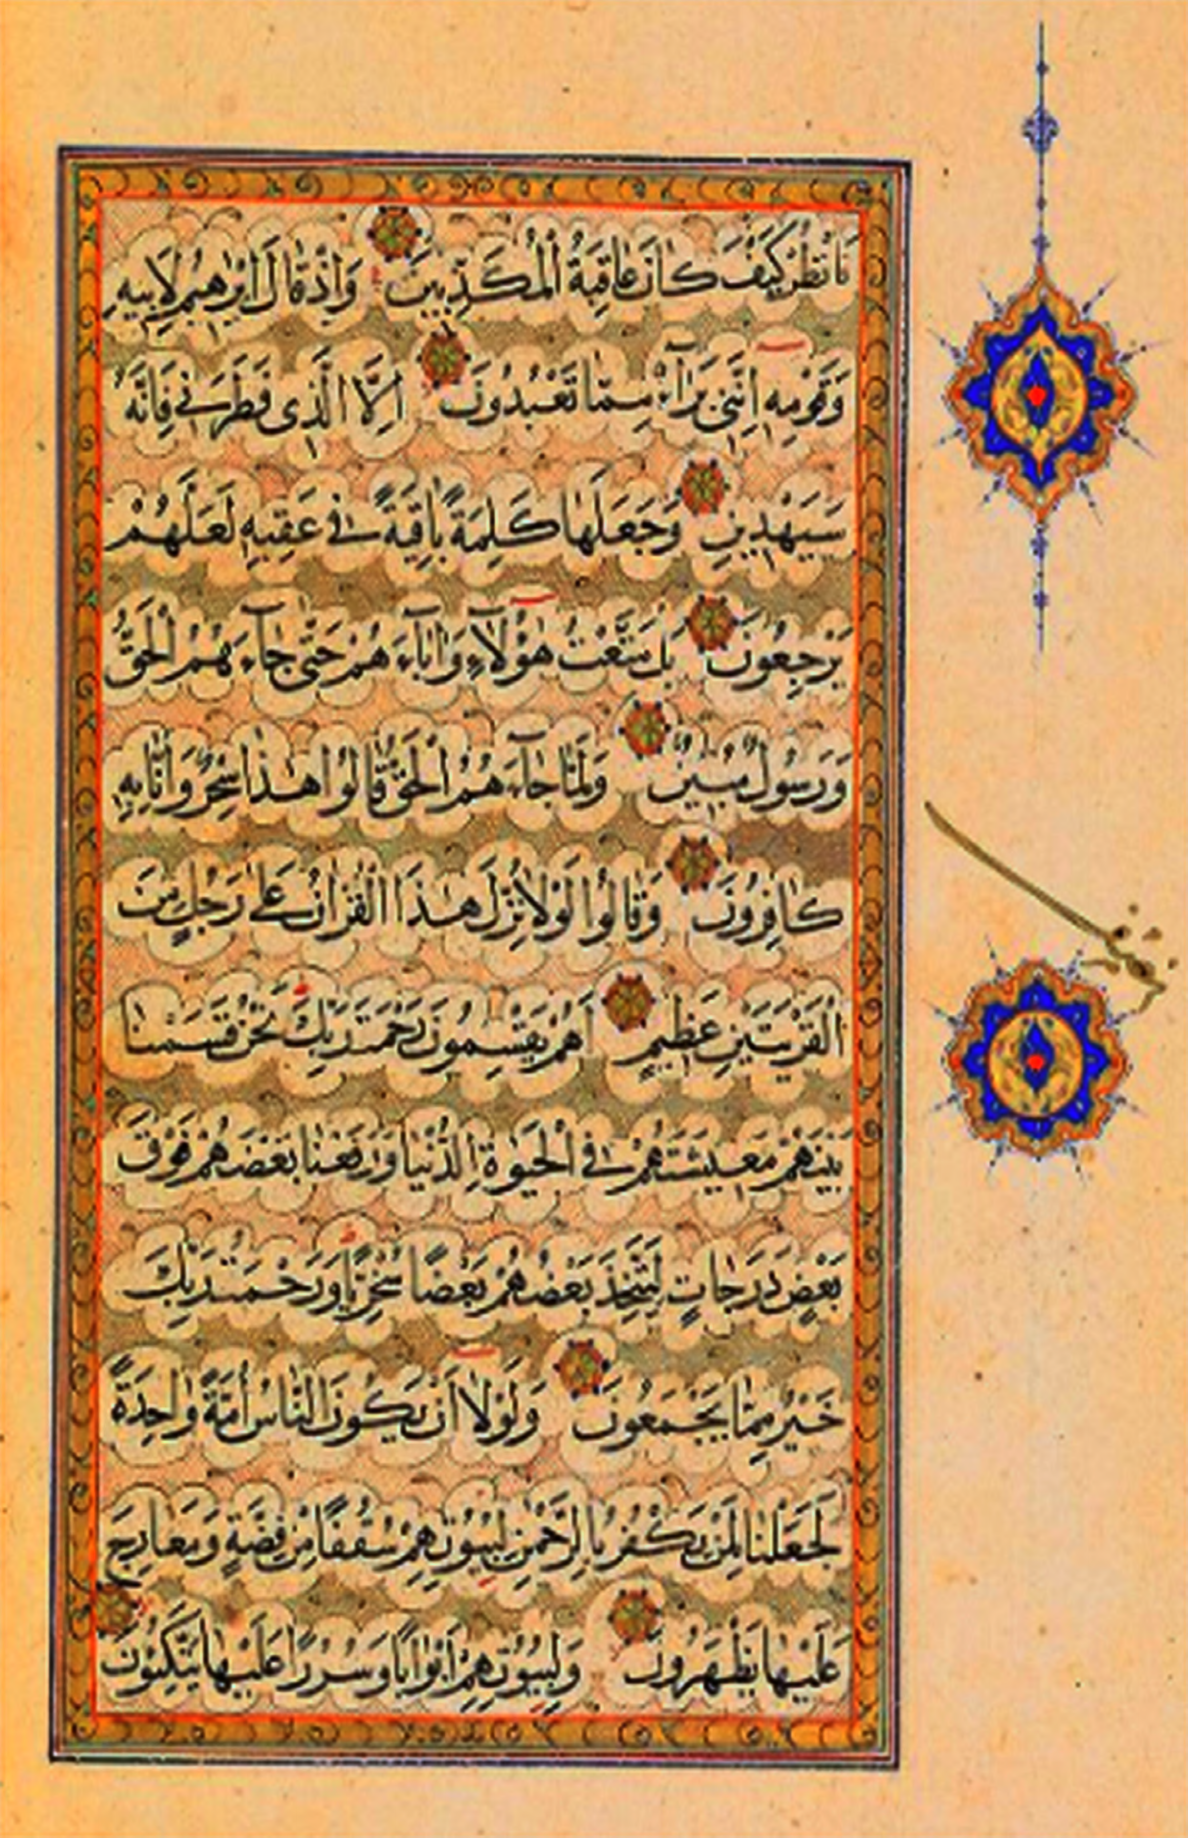 فَانْظُرْ كَيْفَ كَانَ عَاقِبَةُ الْمُكَذِّبِينَ وَاِذْ قَالَ اِبْرٰهِيمُ لِاَبِيهِ
وَقَوْمِهِ اِنَّنِي بَرَآءٌ مِمَّا تَعْبُدُونَ اِلَّا الَّذِى فَطَرَنِى فَاِنَّهُ
سَيَهْدِينِ وَجَعَلَهَا كَلِمَةً بَاقِيَةً فِى عَقِبِهِ لَعَلَّهُمْ
يَرْجِعُونَ بَلْ مَتَّعْتُ هٰؤُلَآءِ وَاٰبَآءَهُمْ حَتّٰى جَآءَهُمُ الْحَقُّ
وَرَسُولٌ مُبِينٌ وَلَمَّا جَآءَهُمُ الْحَقُّ قَالُوا هٰذَا سِحْرٌ وَاِنَّا بِهِ
كَافِرُونَ وَقَالُوا لَوْلَا نُزِّلَ هٰذَا الْقُرْاٰنُ عَلٰى رَجُلٍ مِنَ
الْقَرْيَتَيْنِ عَظِيمٍ اَهُمْ يَقْسِمُونَ رَحْمَتَ رَبِّكَ نَحْنُ قَسَمْنَا
بَيْنَهُمْ مَعِيشَتَهُمْ فِى الْحَيٰوةِ الدُّنْيَا وَرَفَعْنَا بَعْضَهُمْ فَوْقَ
بَعْضٍ دَرَجَاتٍ لِيَتَّخِذَ بَعْضُهُمْ بَعْضًا سُخْرِيًّا وَرَحْمَتُ رَبِّكَ
خَيْرٌ مِمَّا يَجْمَعُونَ وَلَوْلَا اَنْ يَكُونَ النَّاسُ اُمَّةً وَاحِدَةً
لَجَعَلْنَا لِمَنْ يَكْفُرُ بِالرَّحْمٰنِ لِبُيُوتِهِمْ سُقُفًا مِنْ فِضَّةٍ وَمَعَارِجَ
عَلَيْهَا يَظْهَرُونَ وَلِبُيُوتِهِمْ اَبْوَابًا وَسُرُرًا عَلَيْهَا يَتَّكِئُونَ